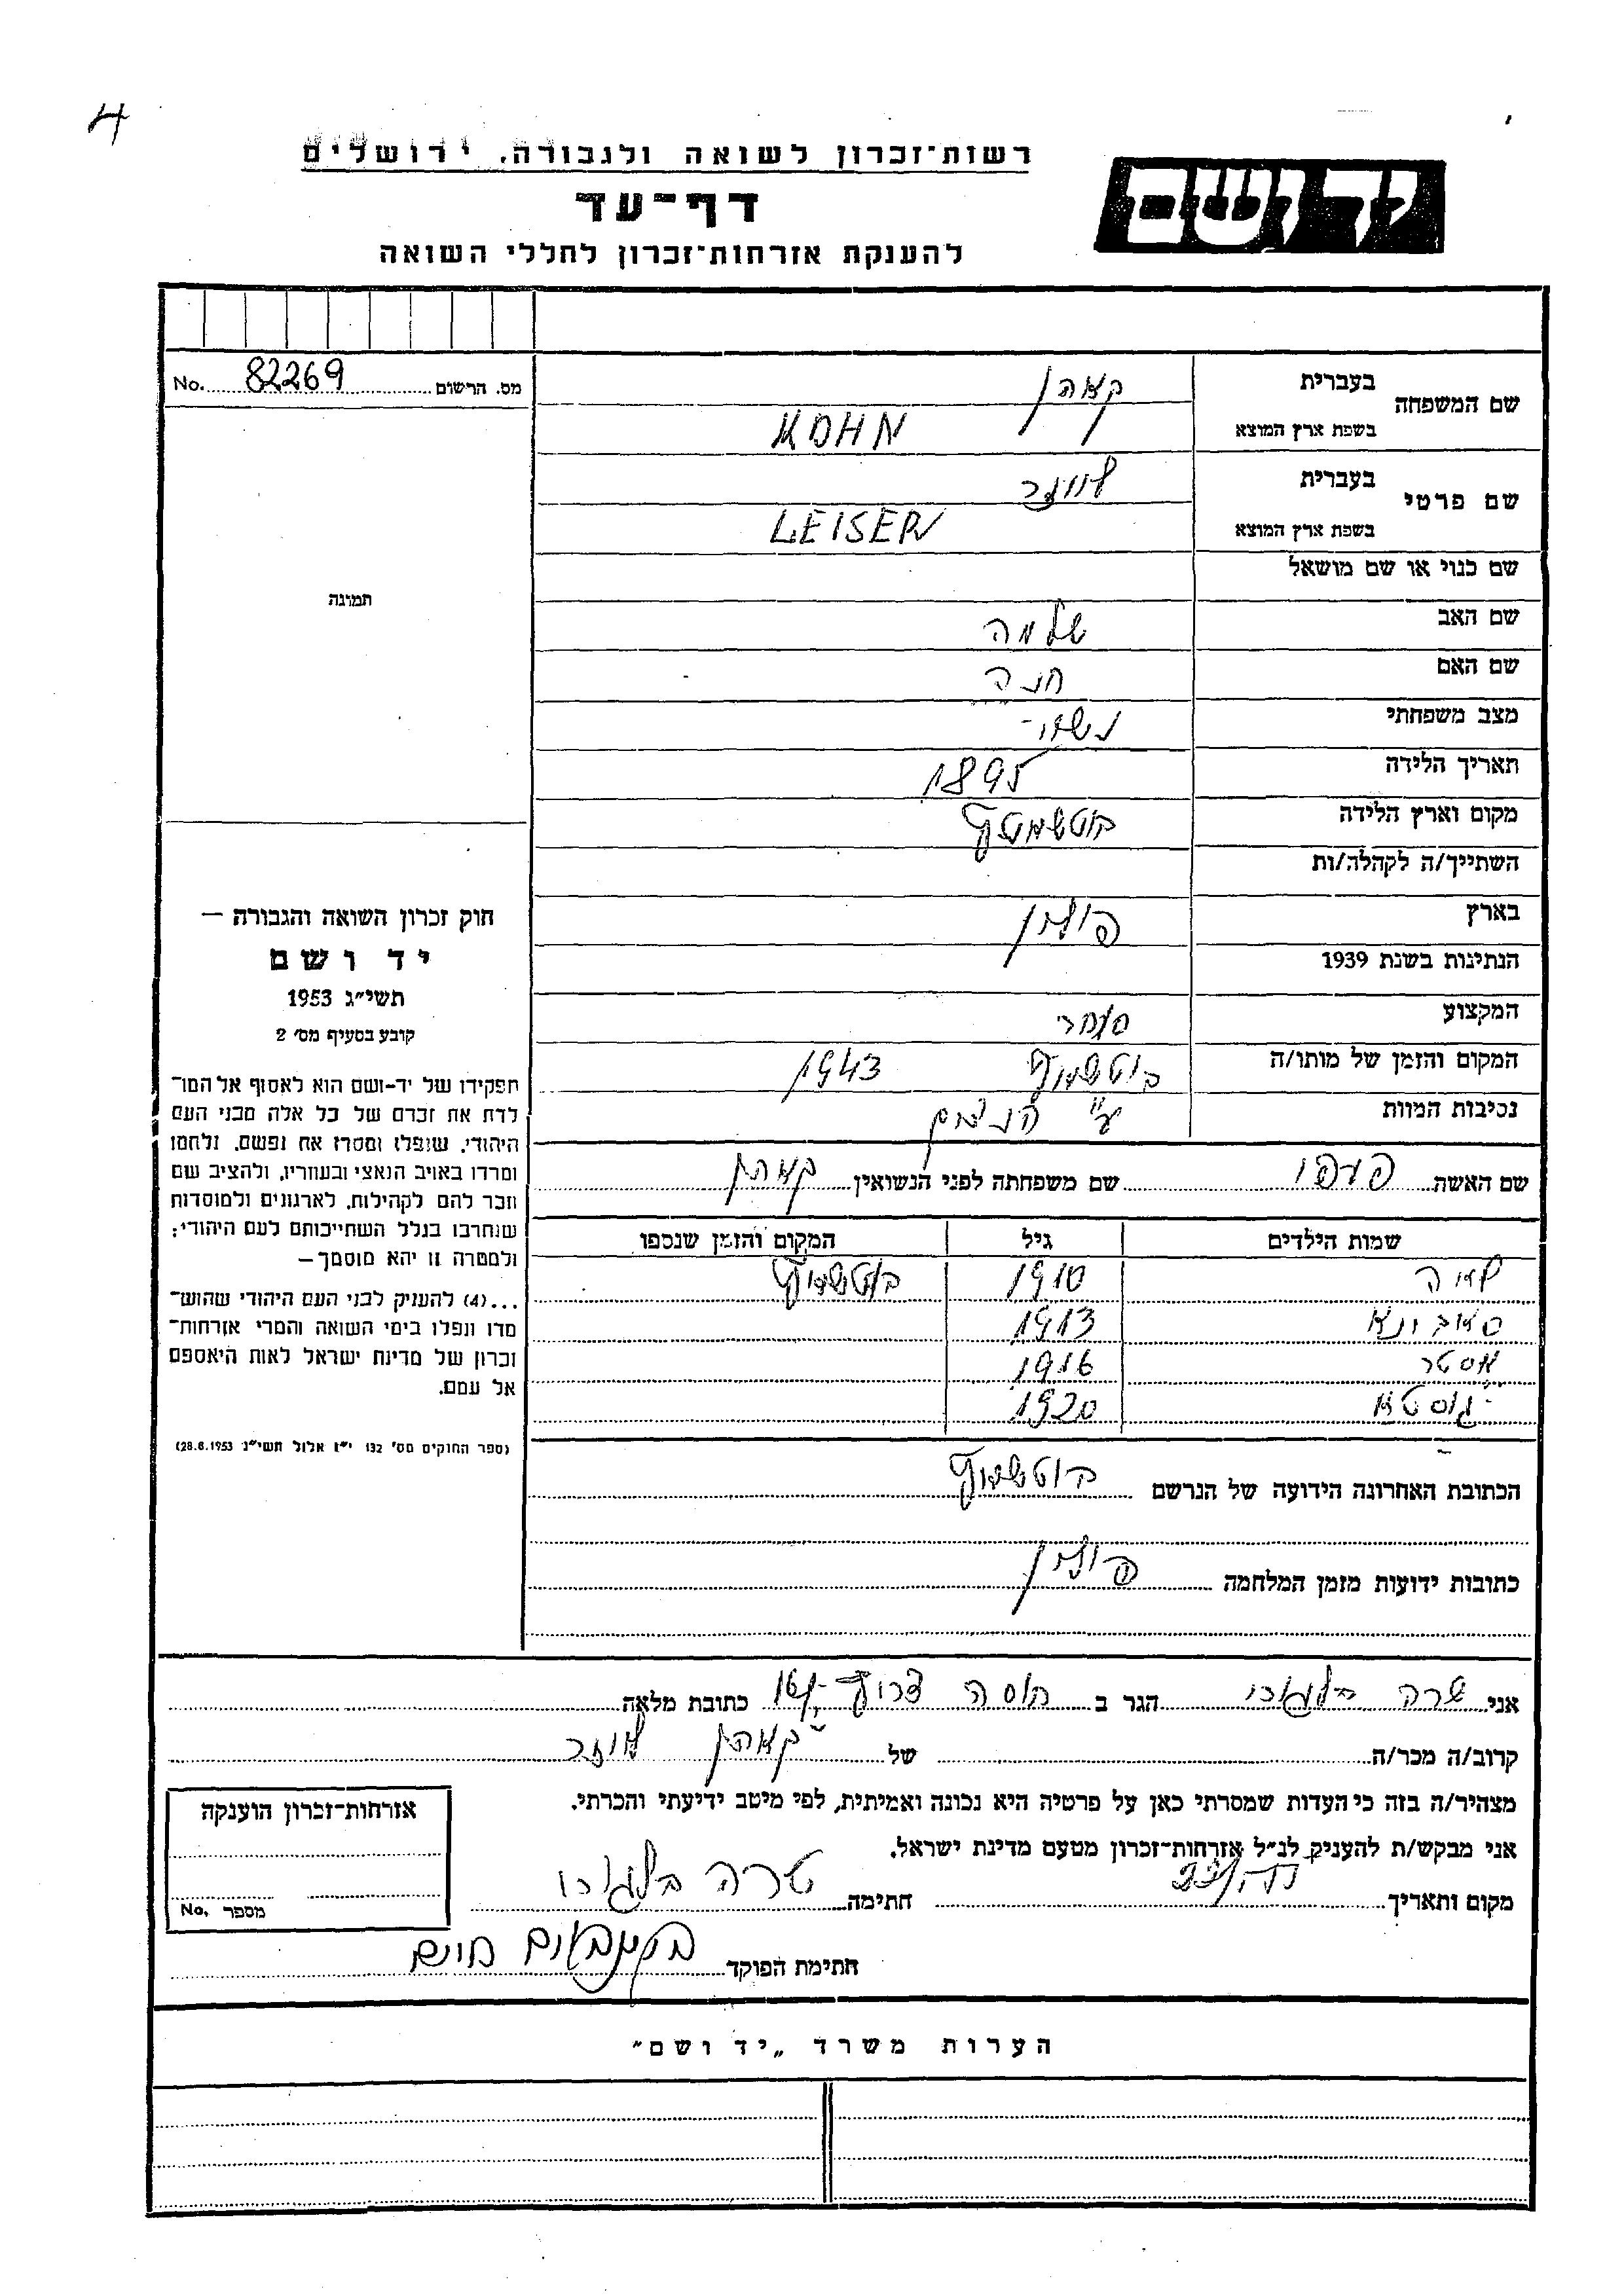 4
רשות-זכרון לשואה ולגבורה, ירושלים
יד ושם
דף-עד
להענקת אזרחות-זכרון לחללי השואה
מס. הרשום 82269 No.
שם המשפחה בעברית קאהן
בשפת ארץ המוצא KOHN
שם פרטי בעברית
בשפת ארץ המוצא LEISER
שם כנוי או שם מושאל
תמונה
שם האב שלמה
שם האם חנה
מצב משפחתי נשוי
תאריך הלידה 1895
מקום וארץ הלידה
השתייך/ה לקהלה/ות
בארץ פולין
הנתינות בשנת 1939
המקצוע סוחר
המקום והזמן של מותו/ה 1943
נסיבות המוות ע"י הנאצים
שם האשה שם משפחתה לפני הנשואין קאהן
שמות הילדים גיל המקום והזמן שנספו
1910
1913
אסטר 1916
גוסטא 1920
הכתובת האחרונה הידועה של הנרשם
כתובות ידועות מזמן המלחמה פולין
חוק זכרון השואה והגבורה —
יד ושם
תשי"ג 1953
קובע בסעיף מס' 2
תפקידו של יד-ושם הוא לאסוף אל המו־
לדת את זכרם של כל אלה מבני העם
היהודי, שנפלו ומסרו את נפשם, נלחמו
ומרדו באויב הנאצי ובעוזריו, ולהציב שם
וזכר להם לקהילות, לארגונים ולמוסדות
שנחרבו בגלל השתייכותם לעם היהודי;
ולמטרה זו יהא מוסמך—
...(4) להעניק לבני העם היהודי שהוש־
מדו ונפלו בימי השואה והמרי אזרחות־
זכרון של מדינת ישראל לאות היאספם
אל עמם.
(ספר החוקים מס' 132 י"ז אלול תשי"ג 28.8.1953)
אני שרה הגר ב כתובת מלאה
קרוב/ה מכר/ה של קאהן
מצהיר/ה בזה כי העדות שמסרתי כאן על פרטיה היא נכונה ואמיתית, לפי מיטב ידיעתי והכרתי.
אני מבקש/ת להעניק לנ"ל אזרחות-זכרון מטעם מדינת ישראל.
מקום ותאריך חתימה שרה
חתימת הפוקד
אזרחות-זכרון הוענקה
מספר No.
הערות משרד „יד ושם"